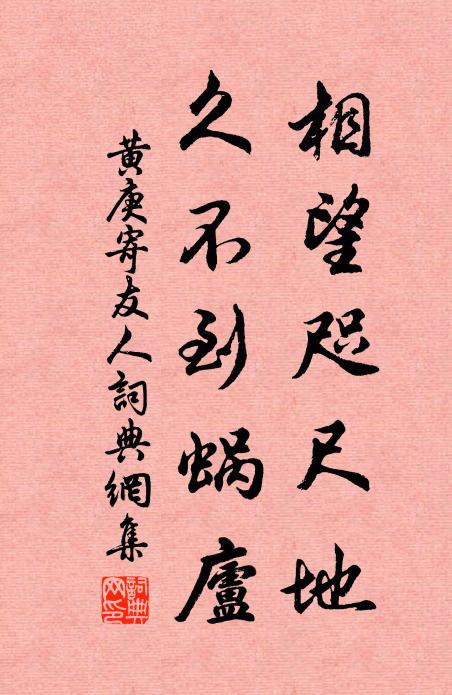 相望咫尺地
久不到蝸廬
黃庚寄友人詞典網集
詞典
网印